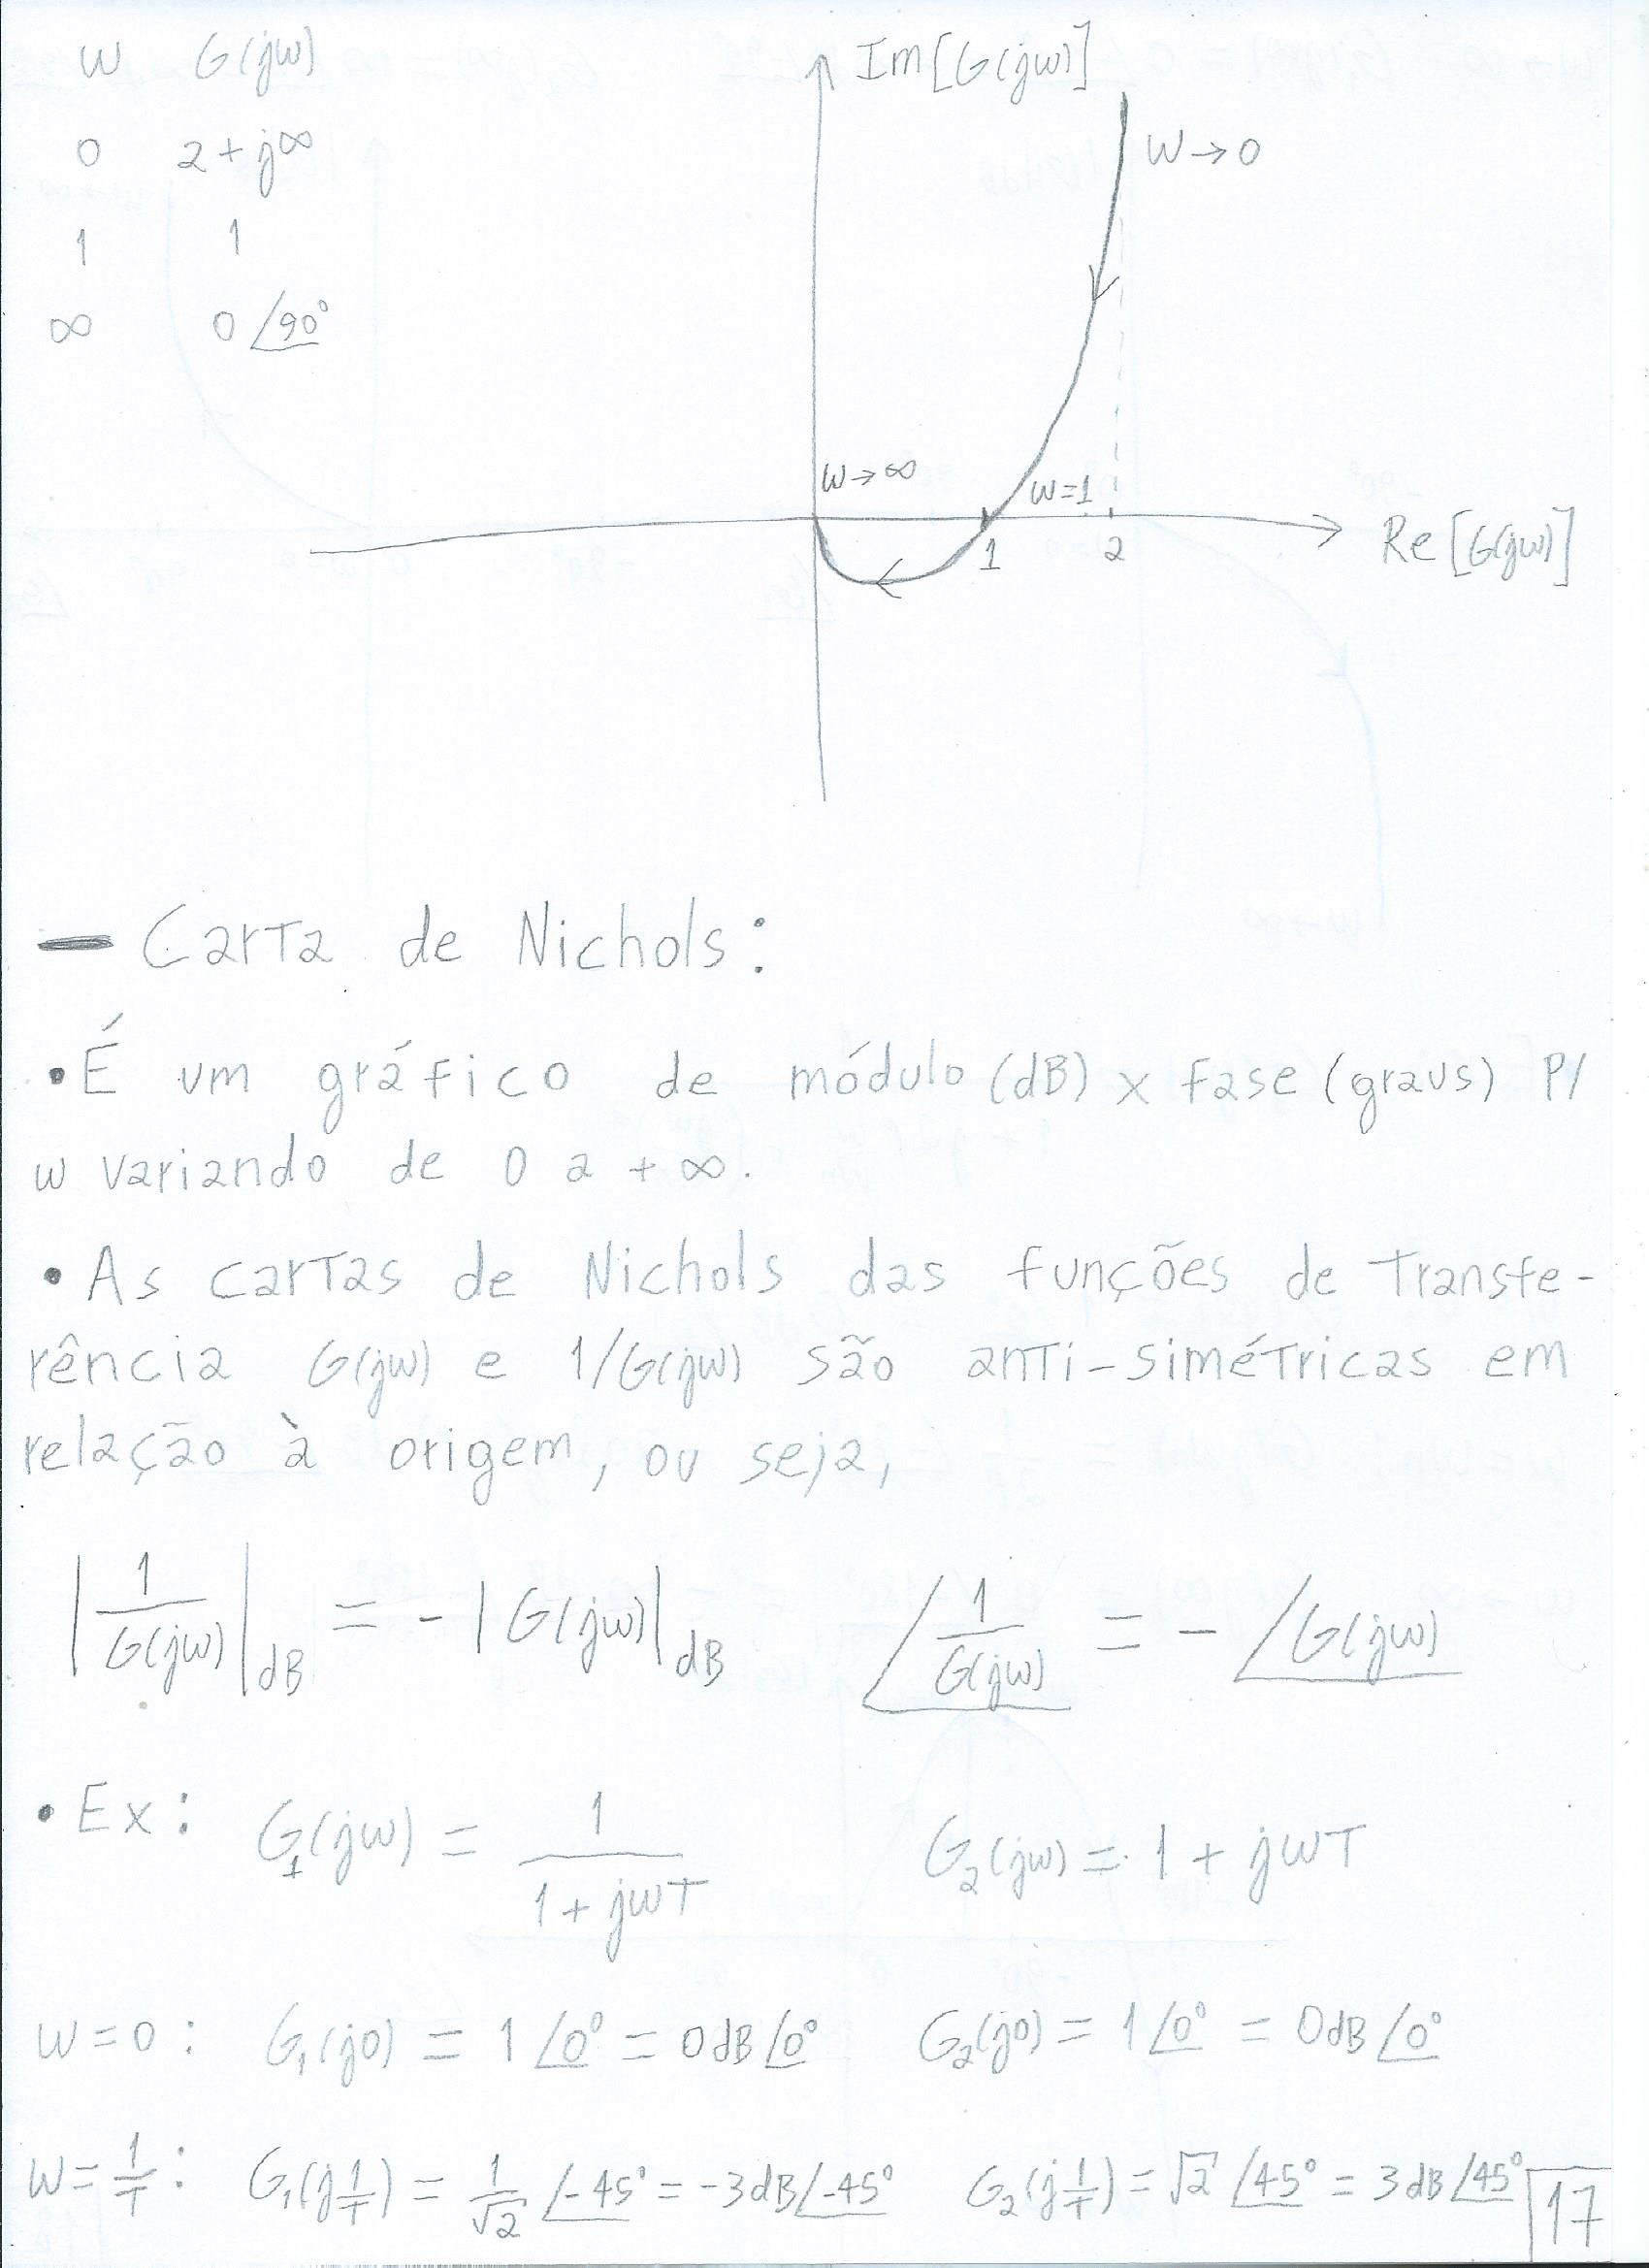 w G(jw)
0 2 + j∞
1 1
∞ 0 ∠90°
Im[G(jw)]
w→0
w→∞
w=1
1 2
Re[G(jw)]
— Carta de Nichols:
• É um gráfico de módulo (dB) x fase (graus) p/
w variando de 0 a +∞.
• As cartas de Nichols das funções de transfe-
rência G(jw) e 1/G(jw) são anti-simétricas em
relação à origem, ou seja,
|1/G(jw)|dB = -|G(jw)|dB ∠1/G(jw) = -∠G(jw)
• Ex: G₁(jw) = 1/(1 + jwT) G₂(jw) = 1 + jwT
w=0: G₁(j0) = 1 ∠0° = 0 dB ∠0° G₂(j0) = 1 ∠0° = 0 dB ∠0°
w=1/T: G₁(j1/T) = 1/√2 ∠-45° = -3 dB ∠-45° G₂(j1/T) = √2 ∠45° = 3 dB ∠45°
17